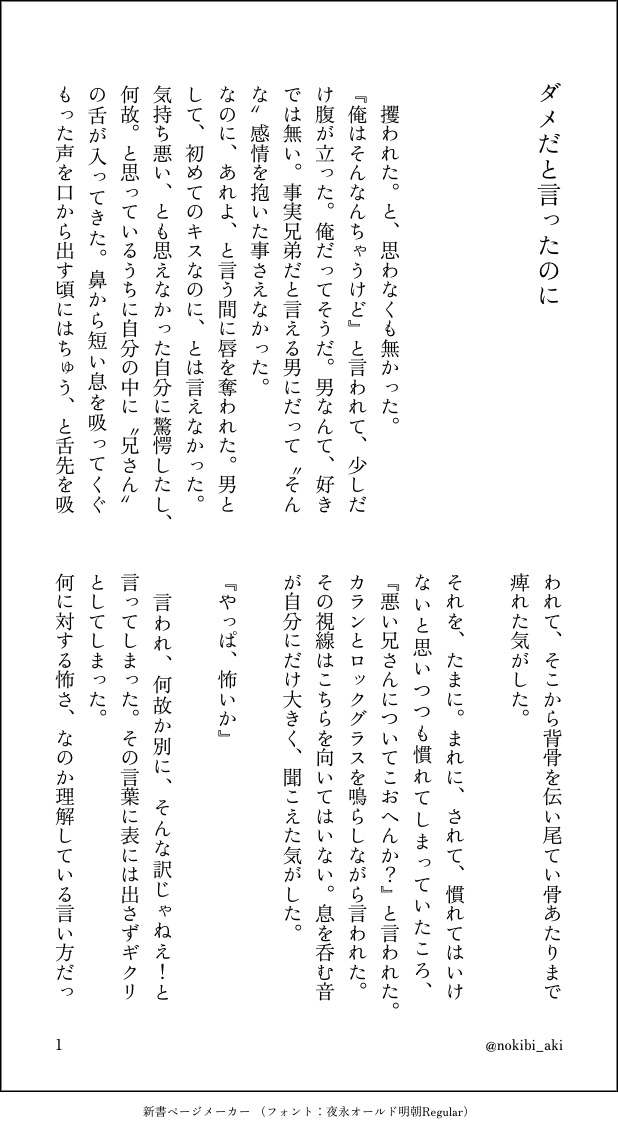 ダメだと言ったのに
　攫われた。と、思わなくも無かった。
『俺はそんなんちゃうけど』と言われて、少しだ
け腹が立った。俺だってそうだ。男なんて、好き
では無い。事実兄弟だと言える男にだって〝そん
な〟感情を抱いた事さえなかった。
なのに、あれよ、と言う間に唇を奪われた。男と
して、初めてのキスなのに、とは言えなかった。
気持ち悪い、とも思えなかった自分に驚愕したし、
何故。と思っているうちに自分の中に〝兄さん〟
の舌が入ってきた。鼻から短い息を吸ってくぐ
もった声を口から出す頃にはちゅう、と舌先を吸
われて、そこから背骨を伝い尾てい骨あたりまで
痺れた気がした。
それを、たまに。まれに、されて、慣れてはいけ
ないと思いつつも慣れてしまっていたころ、
『悪い兄さんについてこおへんか？』と言われた。
カランとロックグラスを鳴らしながら言われた。
その視線はこちらを向いてはいない。息を呑む音
が自分にだけ大きく、聞こえた気がした。
『やっぱ、怖いか』
　言われ、何故か別に、そんな訳じゃねえ！と
言ってしまった。その言葉に表には出さずギクリ
としてしまった。
何に対する怖さ、なのか理解している言い方だっ
1
@nokibi_aki
新書ページメーカー（フォント：夜永オールド明朝Regular）